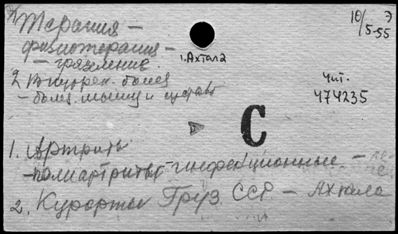 Терапия –
физиотерапия –
– грязелечение.
1. Ахтала
10/5-55
Э
2 Внутрен. болез
– болез. мышц и сустав
Чит.
474235
С
1. Артриты
– полиартриты – инфекционные –
2. Курорты Груз. ССР – Ахтала